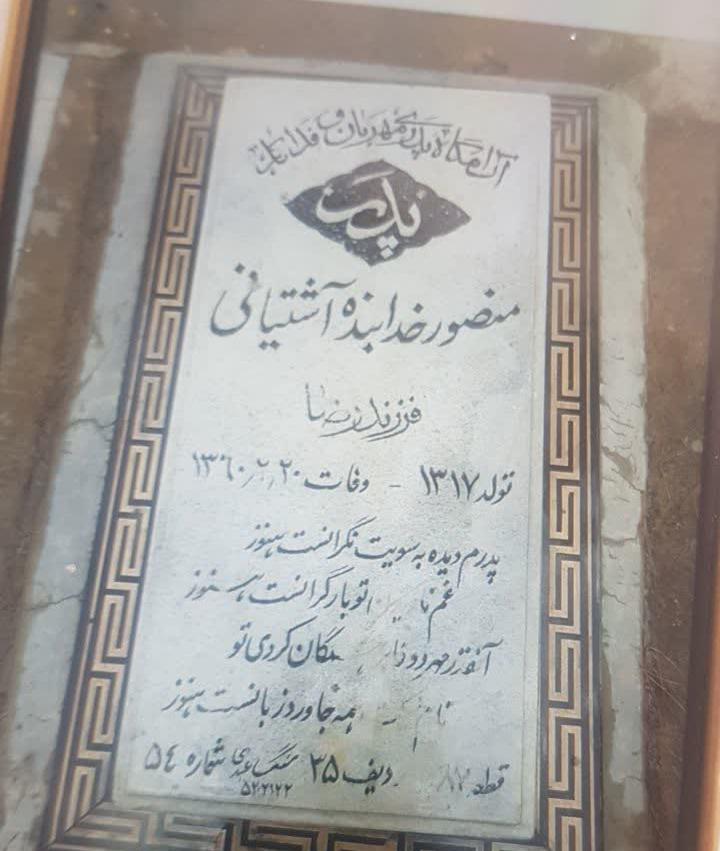 آرامگاه پدری مهربان و فداکار
پدر
منصور خدابنده آشتیانی
فرزند رضا
تولد ۱۳۱۷ - وفات ۱۳۶۰٫۲٫۲۰
پدرم دیده به سویت نگرانست هنوز
غم تو بار گرانست هنوز
آنقدر مهر و وفا همگان کردی تو
همه جا ورد زبانست هنوز
قطعه ردیف ۳۵ شماره ۵۴
سنگ عبدی
۵۲۲۱۲۲